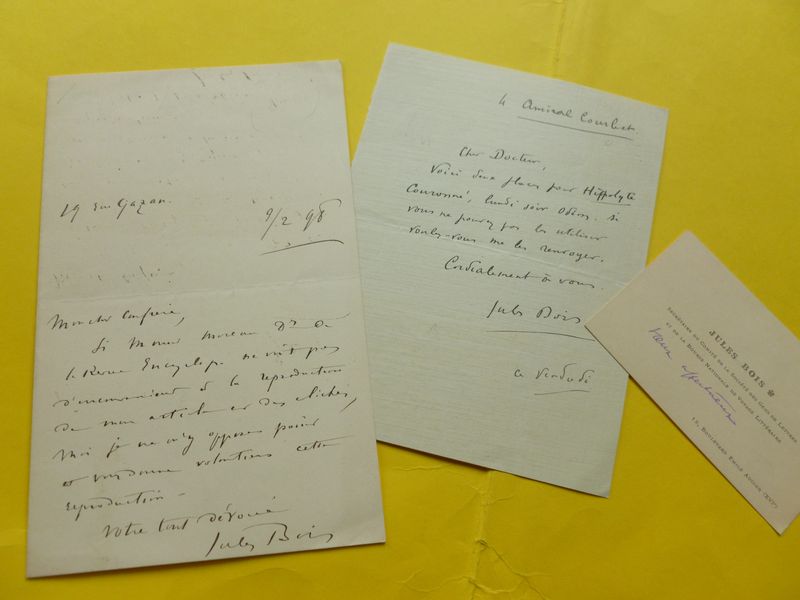 19 rue Gazan.
9/2 98
Mon cher confrère,
Si Monsr Moreau Dr de
la Revue Encyclope ne voit pas
d'inconvénient à la reproduction
de mon article et des clichés,
Moi je ne m'y oppose point
et vous donne volontiers cette
reproduction –
Votre tout dévoué
Jules Bois
4 Amiral Courbet.
Cher Docteur,
Voici deux places pour Hippolyte
Couronné, lundi soir Odéon. Si
vous ne pouvez pas les utiliser
voulez-vous me les renvoyer.
Cordialement à vous.
Jules Bois
ce Vendredi
JULES BOIS
SECRÉTAIRE DU COMITÉ DE LA SOCIÉTÉ DES GENS DE LETTRES
ET DE LA BOURSE NATIONALE DE VOYAGE LITTÉRAIRE
vœux affectueux
15, BOULEVARD EMILE AUGIER (XVIe)